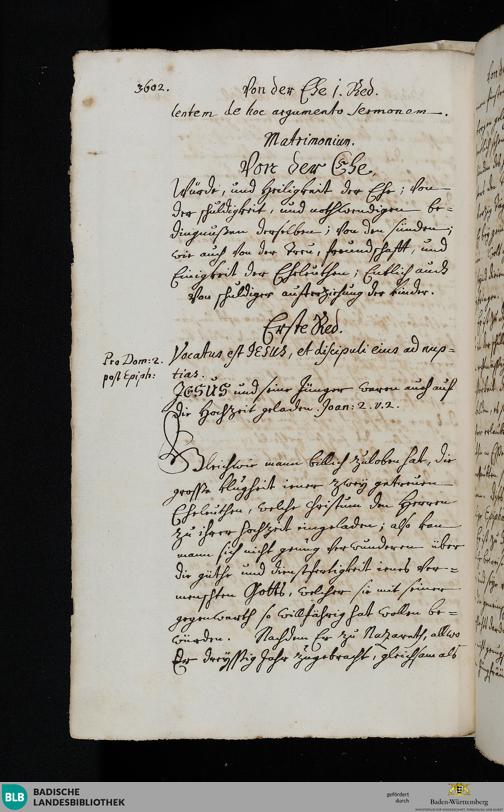 3602.
Von der Ehe 1. Red.
lentem de hoc argumento sermonem.
Matrimonium.
Von der Ehe.
Würde, und Heiligkeit der Ehe; Von
der schuldigkeit, und nothwendigen be=
dingnußen derselben; Von den sünden;
wie auch von der Treu, freundschafft, und
Einigkeit der Eheleuthen; Entlich auch
Von schuldiger aufferziehung der kinder.
Erste Red.
Pro Dom: 2.
post Epiph:
Vocatus est JESUS, et discipuli eius ad nup=
tias.
JESUS und seine Jünger waren auch auf
die Hochzeit geladen. Joan: 2. v. 2.
Gleichwie mann billich zuloben hat, die
grosse klugheit iener zwey getreuen
Eheleuthen, welche Christum den Herren
zu ihrer hochzeit eingeladen; also kan
mann sich nicht genug verwunderen über
die güthe und dienstfertigkeit ienes ver=
menschten Gotts, welcher sie mit seiner
gegenwarth so willfährig hat wollen be=
würden. Nachdem Er zu Nazareth, allwo
Er dreyssig Jahr zugebracht, gleichsam als
BLB
BADISCHE
LANDESBIBLIOTHEK
gefördert
durch
Baden-Württemberg